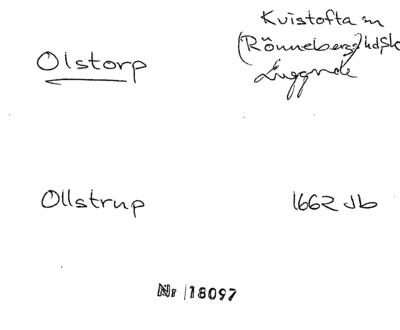 Kvistofta sn
Olstorp
(Rönnebergs) hd, Sk
Luggude
Ollstrup
1662 Jb
Nr 18097